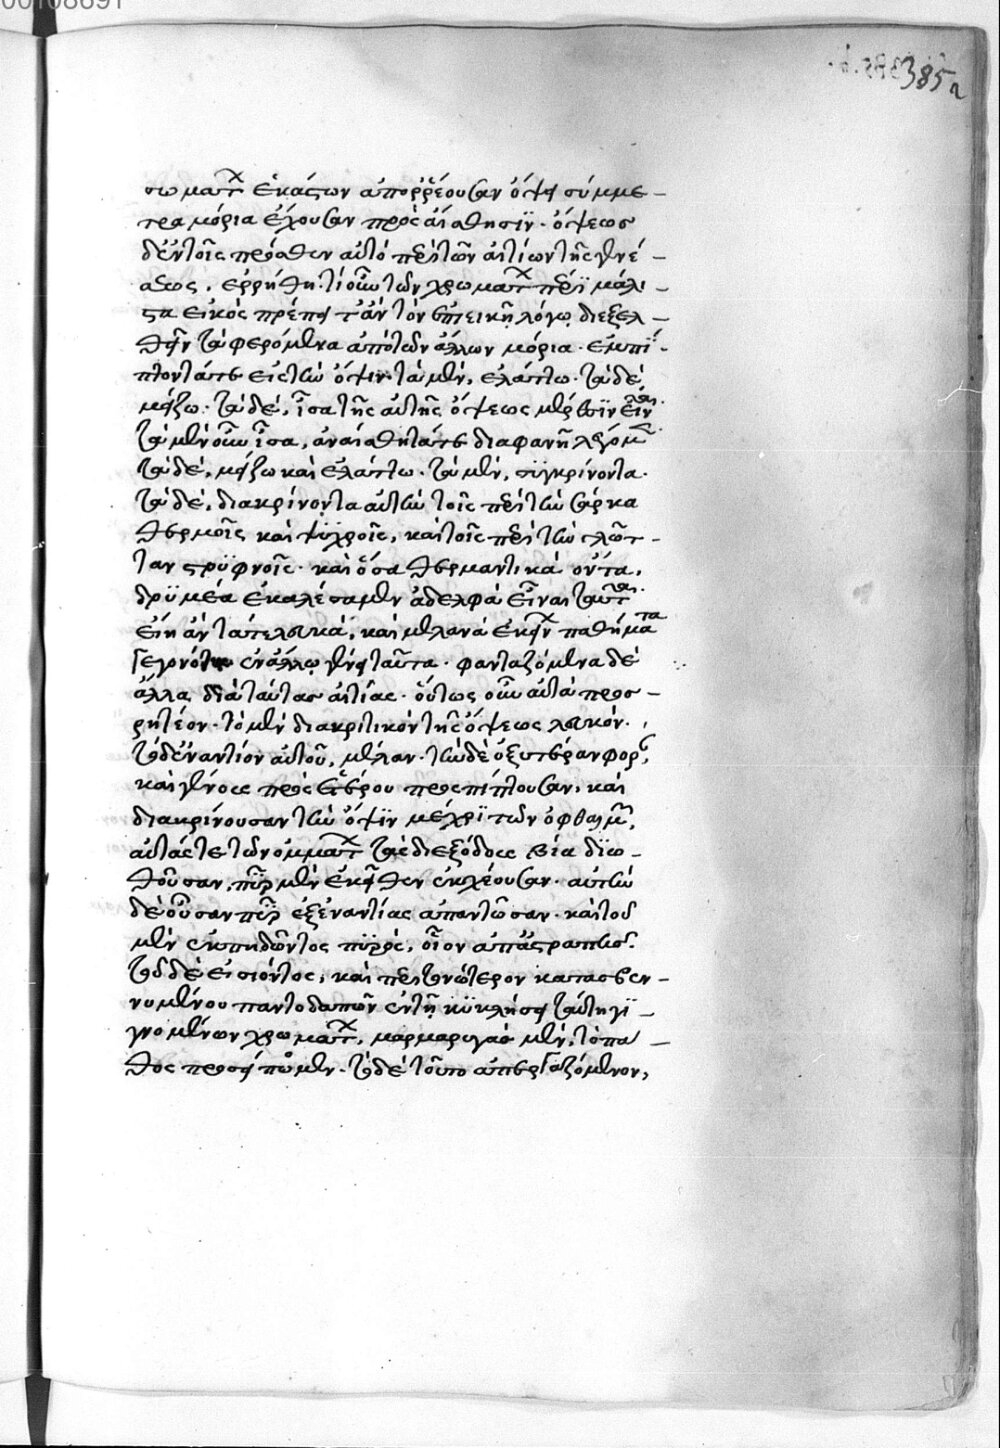 00108691
385
σωμάτων ἑκάστων ἀπορρέουσαν ὄψει σύμμε-
τρα μόρια ἔχουσαν πρὸς αἴσθησιν. ὄψεως
δ' ἐν τοῖς πρόσθεν αὐτὸ περὶ τῶν αἰτίων τῆς γενέ-
σεως, ἐρρήθη. τί οὖν τῶν χρωμάτων πέρι μάλι-
στα εἰκὸς πρέποι τ' ἂν τὸν ἐπιεικῆ λόγω διεξελ-
θεῖν τὰ φερόμενα ἀπὸ τῶν ἄλλων μόρια. ἐμπί-
πτοντά τε εἰς τὴν ὄψιν. τὰ μὲν, ἐλάττω. τὰ δὲ
μείζω. τὰ δὲ, ἴσα τῆς αὐτῆς ὄψεως μέρεσιν εἶναι.
τὰ μὲν οὖν ἴσα, ἀναίσθητά τε διαφανῆ λέγομεν.
τὰ δὲ, μείζω καὶ ἐλάττω. τὰ μὲν, συγκρίνοντα.
τὰ δὲ, διακρίνοντα αὐτὴν τοῖς περὶ τὴν σάρκα
θερμοῖς καὶ ψυχροῖς, καὶ τοῖς περὶ τὴν γλῶτ-
ταν στρυφνοῖς. καὶ ὅσα θερμαντικὰ ὄντα,
δρυμέα ἐκαλέσαμεν ἀδελφὰ εἶναι ταῦτα.
εἴη ἂν τά τε λευκὰ, καὶ μέλανα ἐκείνων παθήματα
γεγονότα ἐν ἄλλω γένει ταῦτα. φανταζόμενα δὲ
ἄλλα διὰ ταύτας αἰτίας. οὕτως οὖν αὐτὰ προσ-
ρητέον. τὸ μὲν διακριτικὸν τῆς ὄψεως λευκόν.
τὸ δ' ἐναντίον αὐτοῦ, μέλαν. τὴν δὲ ὀξυτέραν φορὰν
καὶ γένους πυρὸς ἑτέρου προσπίπτουσαν, καὶ
διακρίνουσαν τὴν ὄψιν μέχρι τῶν ὀφθαλμῶν,
αὐτάς τε τῶν ὀμμάτων τὰς διεξόδους βία διω-
θοῦσαν, πῦρ μὲν ἐκεῖθεν ἐκχέουσαν. αὐτὴν
δὲ οὖσαν πῦρ ἐξ ἐναντίας ἀπαντῶσαν. καὶ τοῦ
μὲν ἐκπηδῶντος πυρὸς, οἷον ἀπ' ἀστραπῆς.
τοῦ δὲ εἰσιόντος, καὶ περὶ τὸ νώτερον κατασβεν-
νυμένου παντοδαπῶν ἐν τῆ κυκλήσει ταύτη γι-
γνομένων χρωμάτων, μαρμαρυγὰς μὲν, τὸ πά-
θος προσείπομεν. τὸ δὲ τοῦτο ἀπεργαζόμενον,